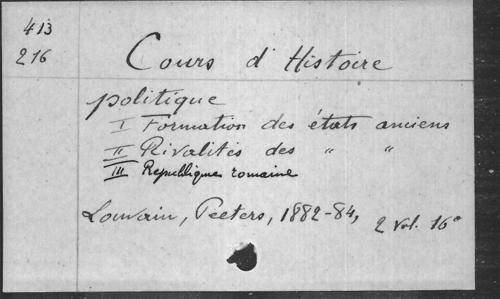 413
216
Cours d'Histoire
politique
I Formation des états anciens
II Rivalités des " "
III Republique romaine
Louvain, Peeters, 1882-84, 2 vol. 16°